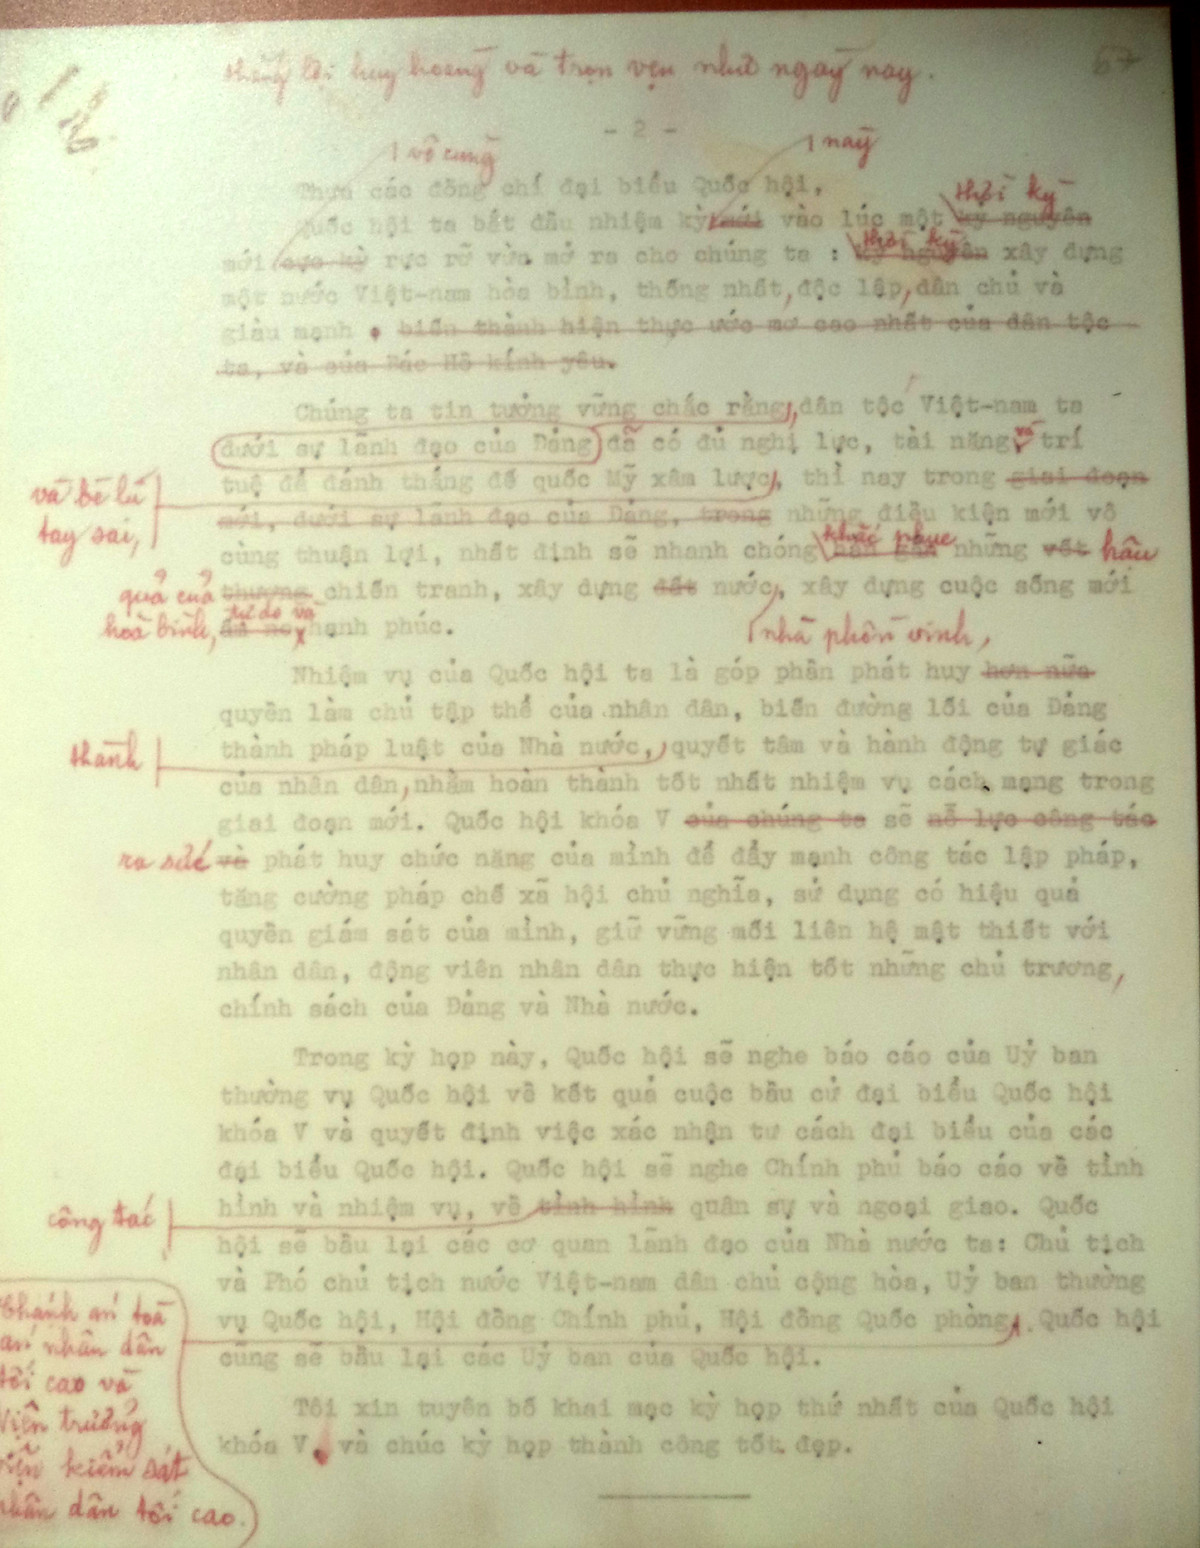 thắng lợi huy hoàng và trọn vẹn như ngày nay.
67
- 2 -
vô cùng
này
Thưa các đồng chí đại biểu Quốc hội,
thời kỳ
Quốc hội ta bắt đầu nhiệm kỳ mới vào lúc một kỷ nguyên
thời kỳ
mới cực kỳ rực rỡ vừa mở ra cho chúng ta : kỷ nguyên xây dựng
một nước Việt-nam hòa bình, thống nhất, độc lập, dân chủ và
giàu mạnh . biến thành hiện thực ước mơ cao nhất của dân tộc
ta, và của Bác Hồ kính yêu.
Chúng ta tin tưởng vững chắc rằng, dân tộc Việt-nam ta
dưới sự lãnh đạo của Đảng đã có đủ nghị lực, tài năng, và trí
tuệ để đánh thắng đế quốc Mỹ xâm lược, thì nay trong giai đoạn
và bè lũ
tay sai,
mới, dưới sự lãnh đạo của Đảng, trong những điều kiện mới vô
khắc phục
cùng thuận lợi, nhất định sẽ nhanh chóng hàn gắn những vết hậu
quả của thương chiến tranh, xây dựng đất nước, xây dựng cuộc sống mới
tự do và
hoà bình, ấm no hạnh phúc.
nhà phồn vinh,
Nhiệm vụ của Quốc hội ta là góp phần phát huy hơn nữa
quyền làm chủ tập thể của nhân dân, biến đường lối của Đảng
thành
thành pháp luật của Nhà nước, quyết tâm và hành động tự giác
của nhân dân, nhằm hoàn thành tốt nhất nhiệm vụ cách mạng trong
giai đoạn mới. Quốc hội khóa V của chúng ta sẽ nỗ lực công tác
ra sức và phát huy chức năng của mình để đẩy mạnh công tác lập pháp,
tăng cường pháp chế xã hội chủ nghĩa, sử dụng có hiệu quả
quyền giám sát của mình, giữ vững mối liên hệ mật thiết với
nhân dân, động viên nhân dân thực hiện tốt những chủ trương,
chính sách của Đảng và Nhà nước.
Trong kỳ họp này, Quốc hội sẽ nghe báo cáo của Uỷ ban
thường vụ Quốc hội về kết quả cuộc bầu cử đại biểu Quốc hội
khóa V và quyết định việc xác nhận tư cách đại biểu của các
đại biểu Quốc hội. Quốc hội sẽ nghe Chính phủ báo cáo về tình
hình và nhiệm vụ, về tình hình quân sự và ngoại giao. Quốc
công tác
hội sẽ bầu lại các cơ quan lãnh đạo của Nhà nước ta: Chủ tịch
và Phó chủ tịch nước Việt-nam dân chủ cộng hòa, Uỷ ban thường
vụ Quốc hội, Hội đồng Chính phủ, Hội đồng Quốc phòng. Quốc hội
cũng sẽ bầu lại các Uỷ ban của Quốc hội.
Chánh án toà
án nhân dân
tối cao và
Viện trưởng
viện kiểm sát
nhân dân tối cao.
Tôi xin tuyên bố khai mạc kỳ họp thứ nhất của Quốc hội
khóa V, và chúc kỳ họp thành công tốt đẹp.